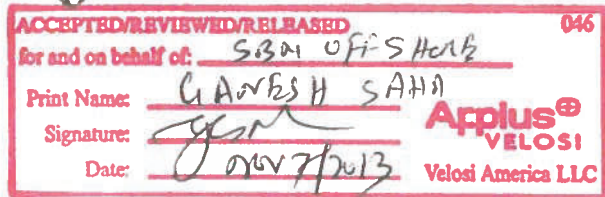 ACCEPTED/REVIEWED/RELEASED 046
for and on behalf of: SBM OFFSHORE
Print Name: GANESH SAHA
Applus⊕
Signature:
VELOSI
Date: NOV 7/2013 Velosi America LLC